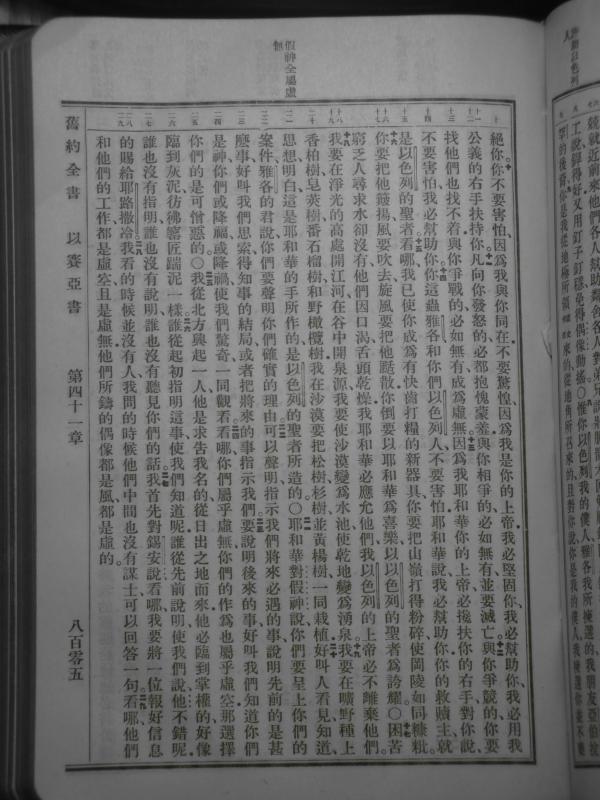 假神全屬虛無
絕你你不要害怕因為我與你同在不要驚惶因為我是你的上帝我必堅固你我必幫助你我必用我
公義的右手扶持你凡向你發怒的必都抱愧蒙羞與你相爭的必如無有並要滅亡與你爭競的你要
找他們也找不着與你爭戰的必如無有成為虛無因為我耶和華你的上帝必攙扶你的右手對你說
不要害怕我必幫助你你這蟲雅各和你們以色列人不要害怕耶和華說我必幫助你你的救贖主就
是以色列的聖者看哪我已使你成為有快齒打糧的新器具你要把山嶺打得粉碎使岡陵如同糠粃
你要把他簸揚風要吹去旋風要把他颳散你倒要以耶和華為喜樂以以色列的聖者為誇耀〇困苦
窮乏人尋求水卻沒有他們因口渴舌頭乾燥我耶和華必應允他們我以色列的上帝必不離棄他們
我要在淨光的高處開江河在谷中開泉源我要使沙漠變為水池使乾地變為湧泉我要在曠野種上
香柏樹皂莢樹番石榴樹和野橄欖樹我在沙漠要把松樹杉樹並黃楊樹一同栽植好叫人看見知道
思想明白這是耶和華的手所作的是以色列的聖者所造的〇耶和華對假神說你們要呈上你們的
案件雅各的君說你們要聲明你們確實的理由可以聲明指示我們將來必遇的事說明先前的是甚
麼事好叫我們思索得知事的結局或者把將來的事指示我們要說明後來的事好叫我們知道你們
是神你們或降福或降禍使我們驚奇一同觀看看哪你們屬乎虛無你們的作為也屬乎虛空那選擇
你們的是可憎惡的〇我從北方興起一人他是求告我名的從日出之地而來他必臨到掌權的好像
臨到灰泥彷彿窰匠踹泥一樣誰從起初指明這事使我們知道呢誰從先前說明使我們說他不錯呢
誰也沒有指明誰也沒有說明誰也沒有聽見你們的話我首先對錫安說看哪我要將一位報好信息
的賜給耶路撒冷我看的時候並沒有人我問的時候他們中間也沒有謀士可以回答一句看哪他們
和他們的工作都是虛空且是虛無他們所鑄的偶像都是風都是虛的
舊約全書　以賽亞書　第四十一章　八百零五